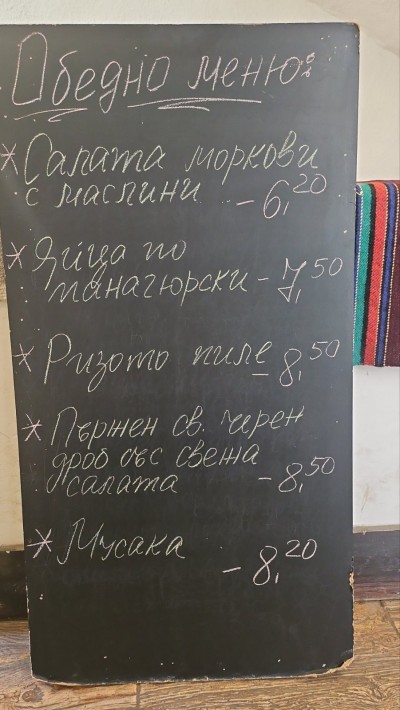 Обедно меню:
* Салата моркови
с маслини - 6,20
* Яйца по
панагюрски - 7,50
* Ризото пиле
- 8,50
* Пържен св. черен
дроб със свежа
салата - 8,50
* Мусака
- 8,20